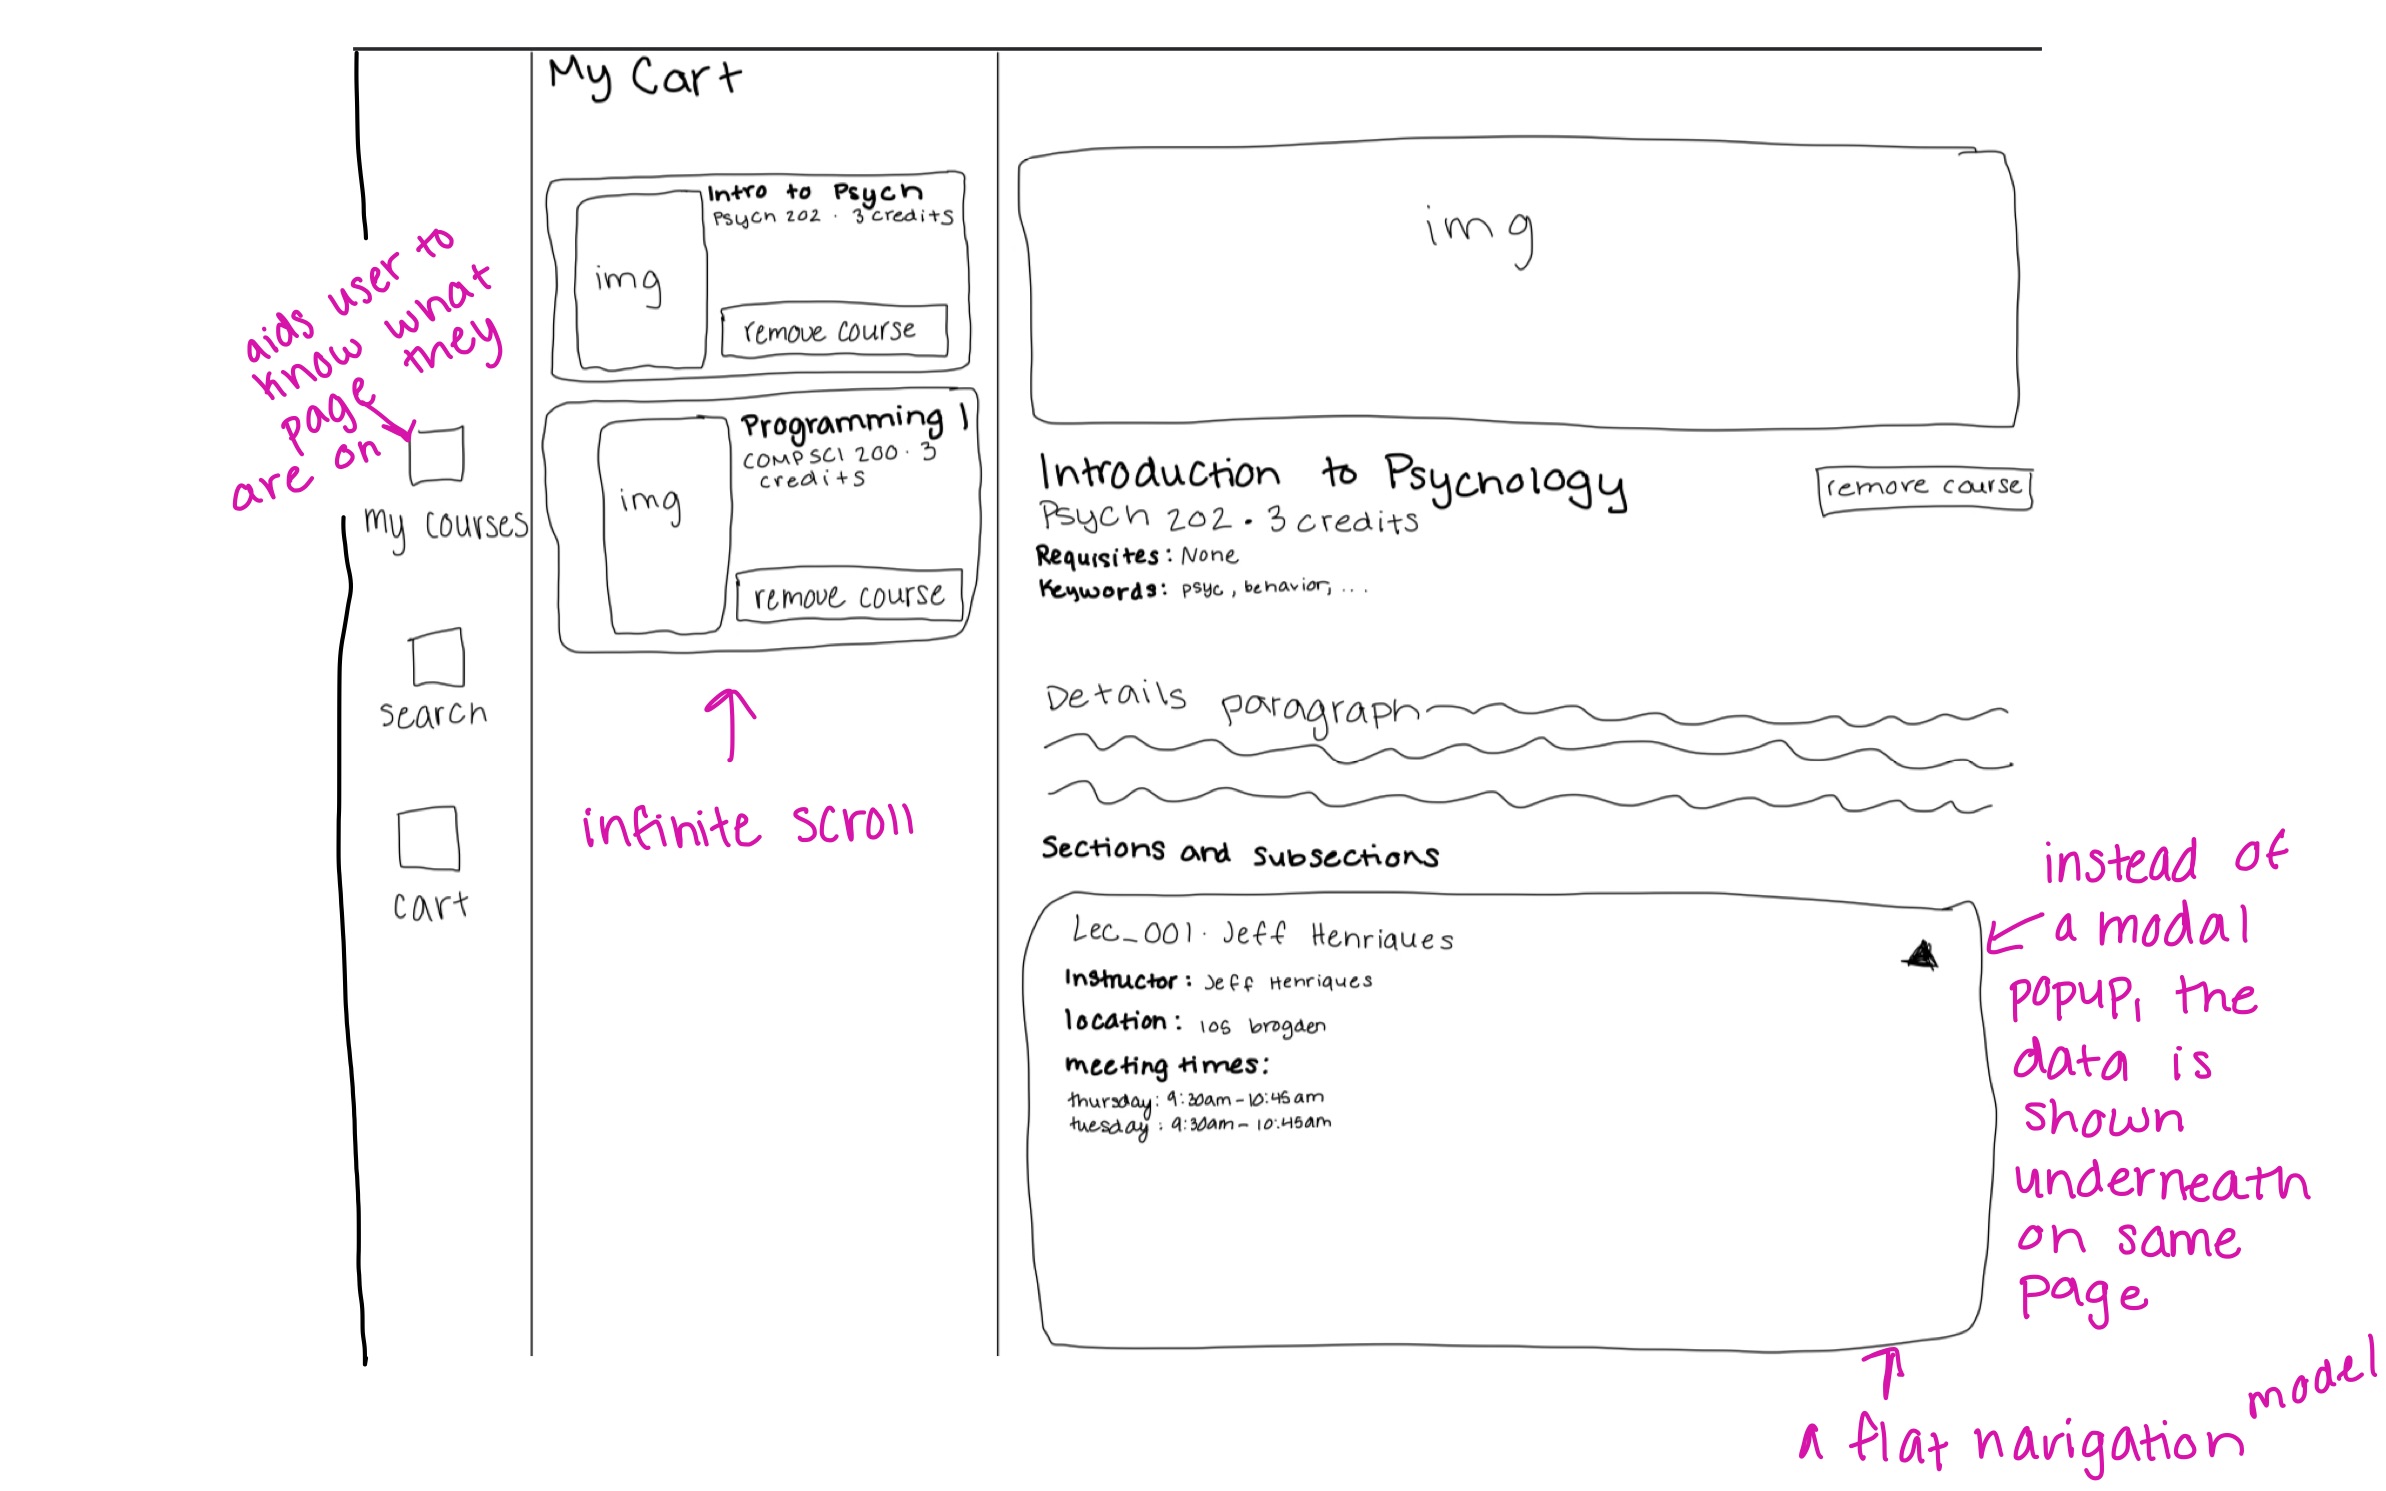 aids user to
know what
page they
are on
my courses
search
cart
My Cart
Intro to Psych
Psych 202 · 3 credits
img
remove course
Programming 1
COMPSCI 200 · 3
credits
img
remove course
infinite scroll
img
Introduction to Psychology
remove course
Psych 202 · 3 credits
Requisites: None
Keywords: psyc, behavior, ...
Details paragraph
Sections and Subsections
Lec_001 · Jeff Henriques
Instructor: Jeff Henriques
location: 105 brogden
meeting times:
thursday: 9:30am - 10:45am
tuesday: 9:30am - 10:45am
instead of
a modal
popup, the
data is
shown
underneath
on same
page
a flat navigation model